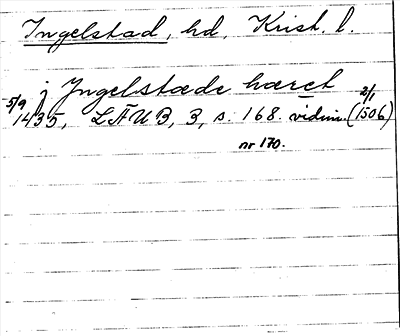 Ingelstad, hd, Krist. l.
j Yngelstæde hæret
5/9 1435, LÄUB, 3, s. 168. vidim. (2/1 1506)
nr 170.